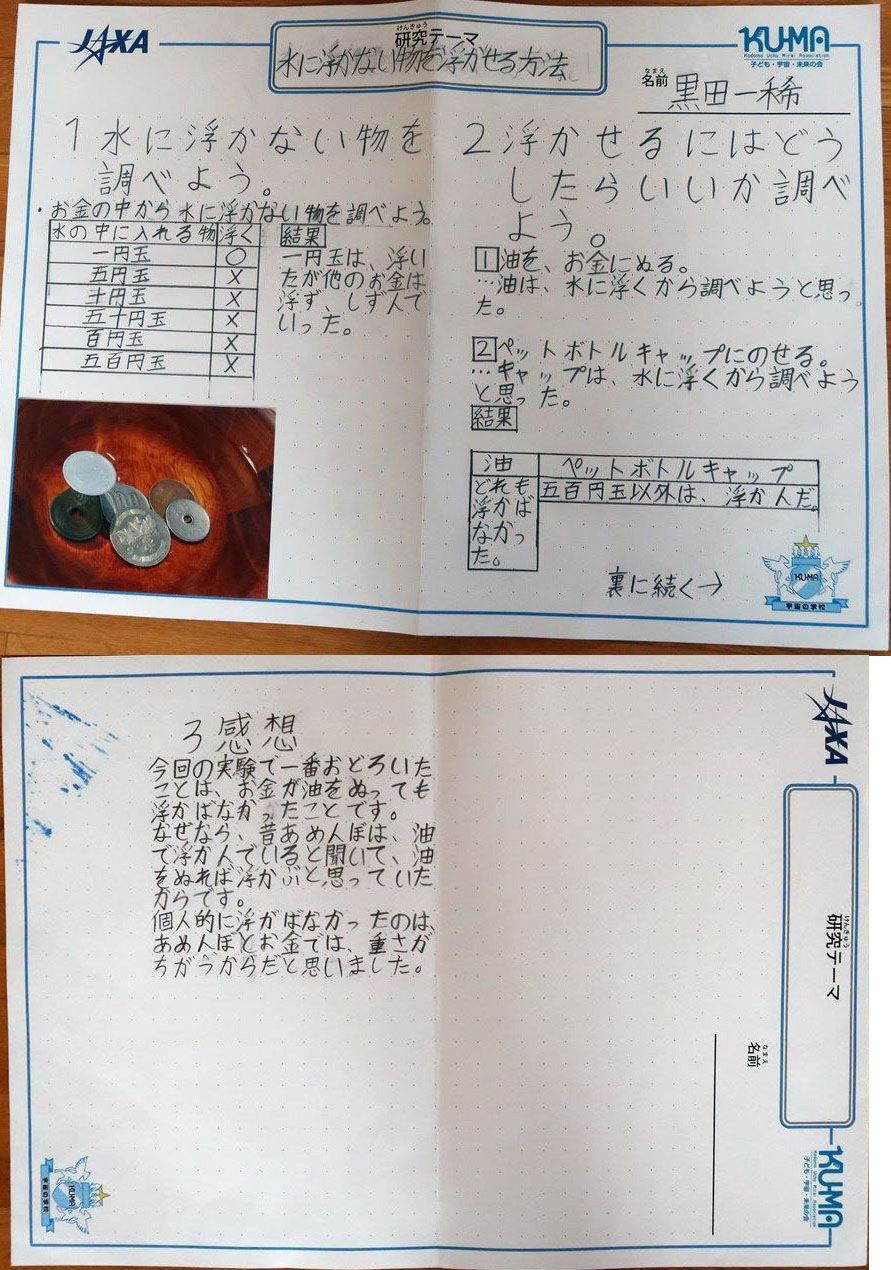 JAXA
けんきゅう
研究テーマ
水に浮かない物を浮かせる方法
KU-MA
Kodomo Uchu Mirai Association
子ども・宇宙・未来の会
なまえ
名前
黒田一稀
1 水に浮かない物を
調べよう。
・お金の中から水に浮かない物を調べよう。
水の中に入れる物 浮く
一円玉 ○
五円玉 X
十円玉 X
五十円玉 X
百円玉 X
五百円玉 X
結果
一円玉は、浮い
たが他のお金は
浮ず、しずんで
いった。
2 浮かせるにはどう
したらいいか調べ
よう。
1 油を、お金にぬる。
…油は、水に浮くから調べようと思っ
た。
2 ペットボトルキャップにのせる。
…キャップは、水に浮くから調べよう
と思った。
結果
油 ペットボトルキャップ
どれも、
浮かば
なかっ
た。
五百円玉以外は、浮かんだ。
裏に続く→
KU-MA
宇宙の学校
3 感想
今回の実験で一番おどろいた
ことは、お金が油をぬっても
浮かばなかったことです。
なぜなら、昔あめんぼは、油
で浮かんでいると聞いて、油
をぬれば浮かぶと思っていた
からです。
個人的に浮がばなかったのは、
あめんぼとお金では、重さが
ちがうからだと思いました。
JAXA
けんきゅう
研究テーマ
なまえ
名前
KU-MA
Kodomo Uchu Mirai Association
子ども・宇宙・未来の会
KU-MA
宇宙の学校